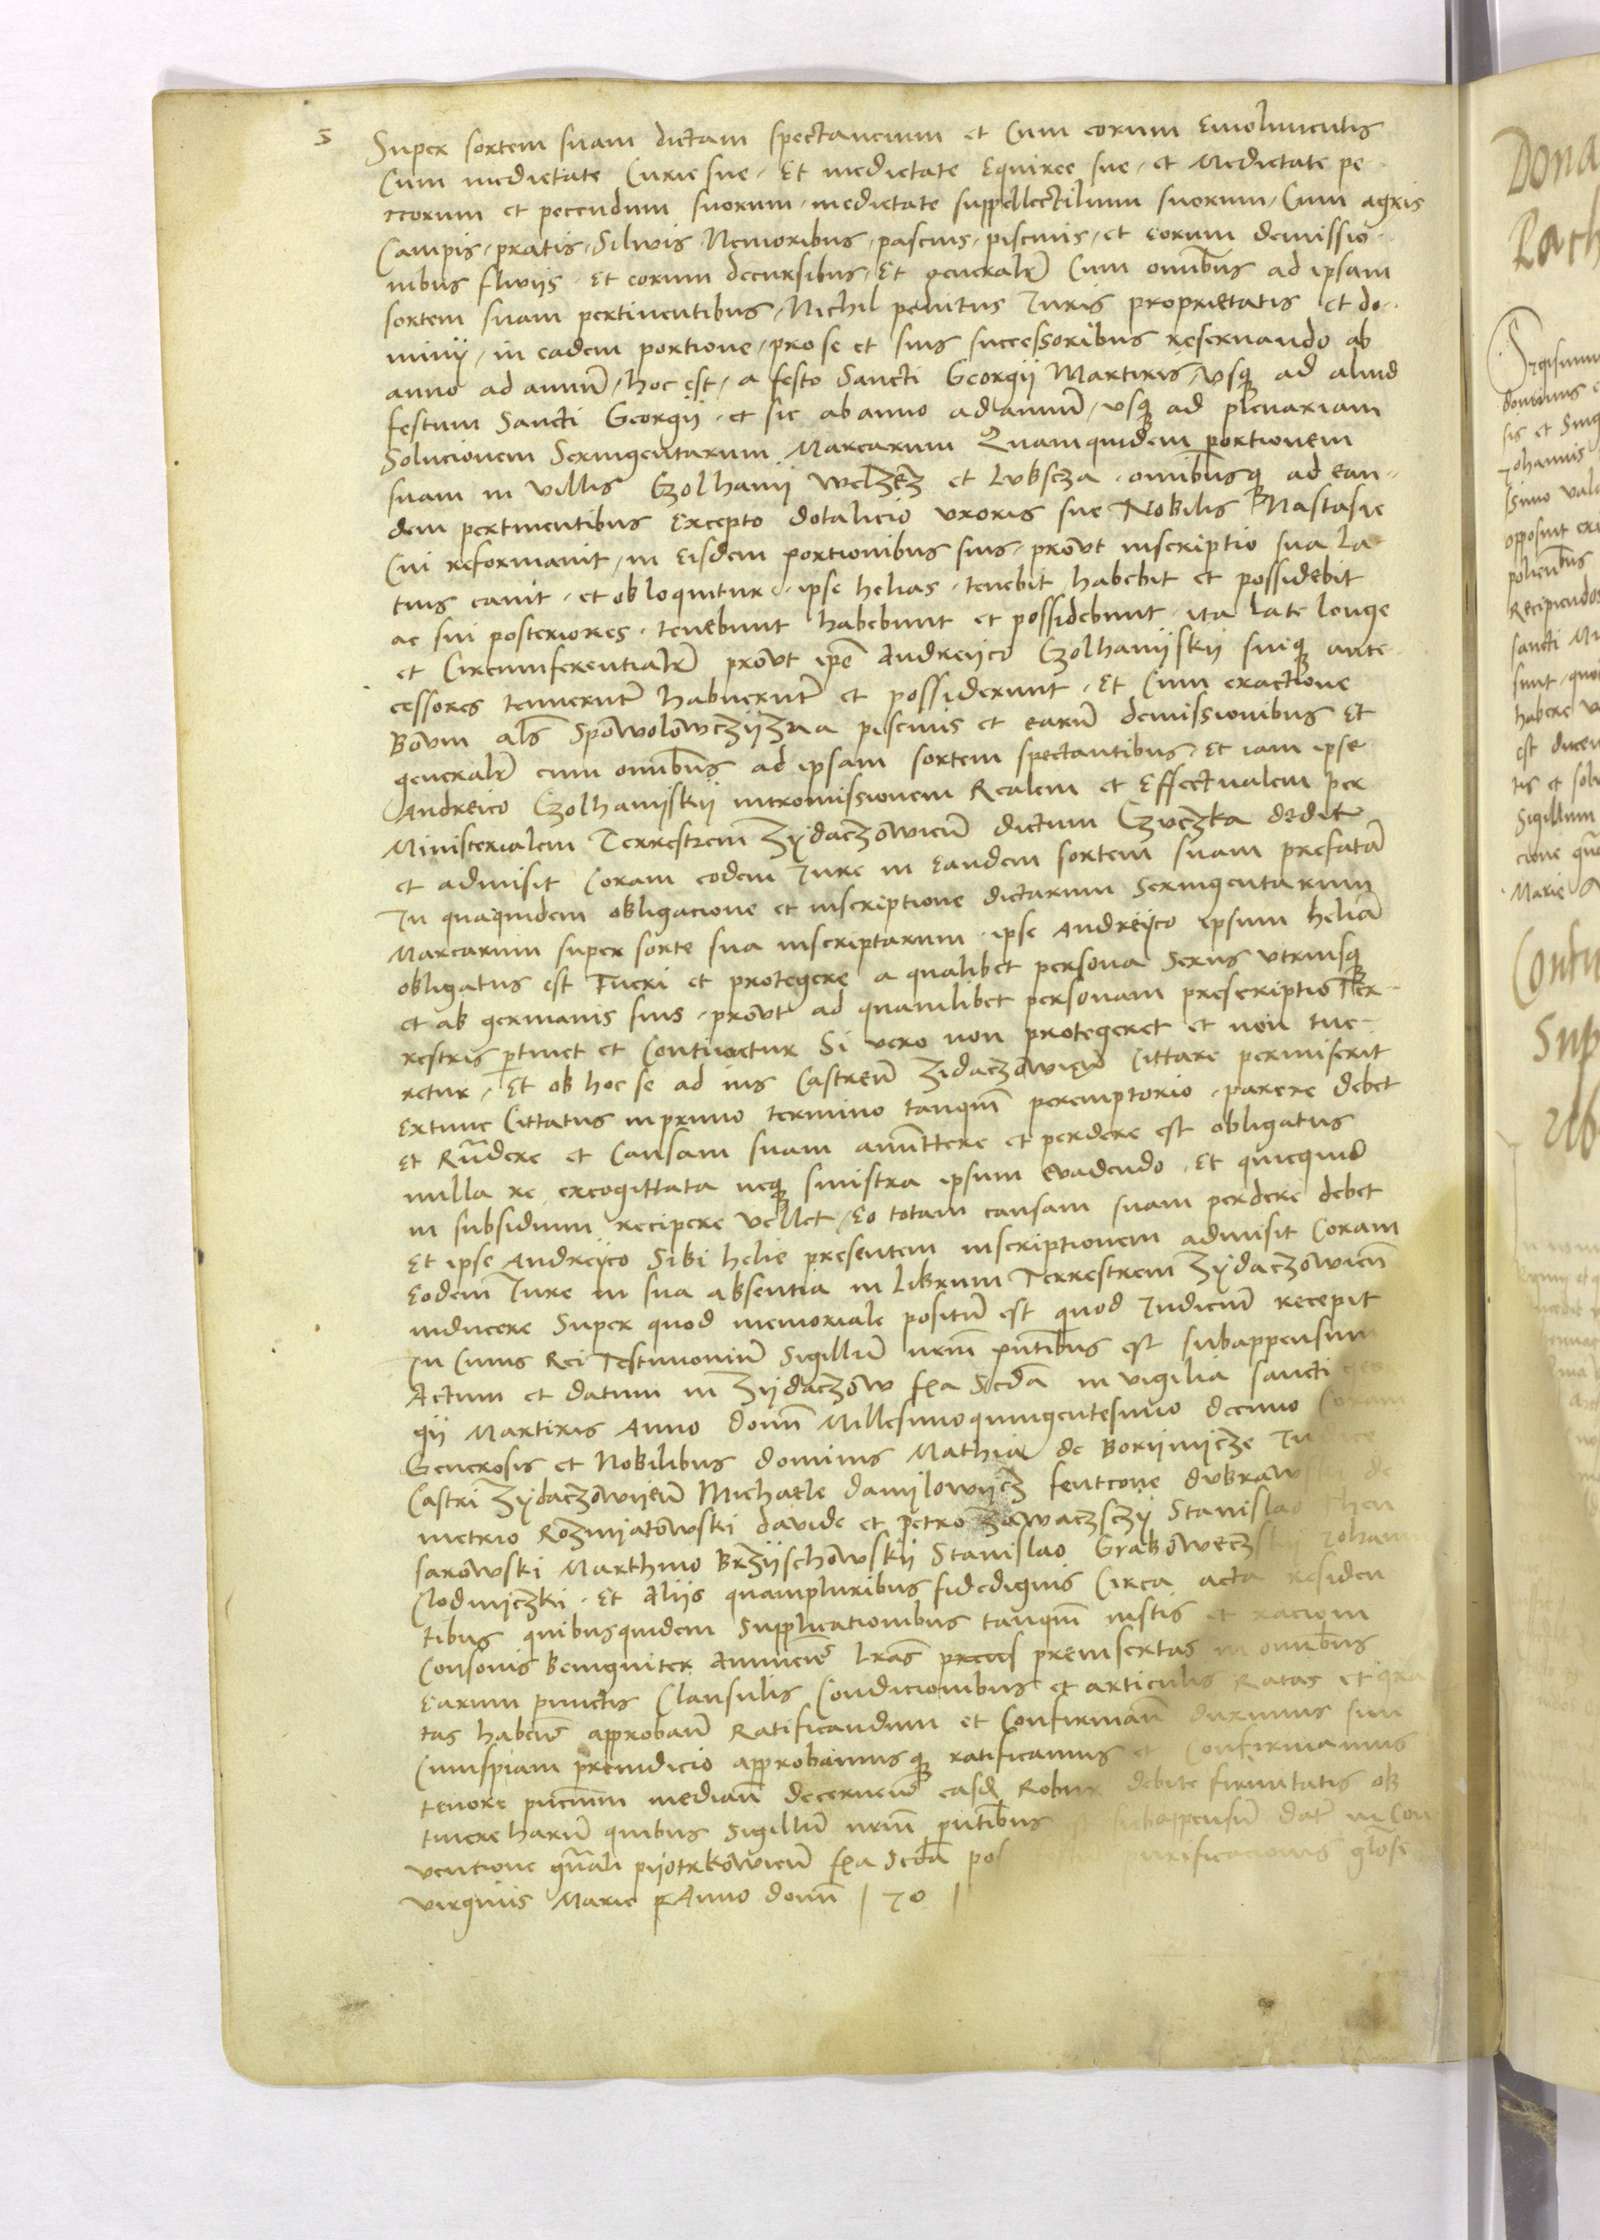 5
Super sortem suam dictam spectancium et Cum eorum Emolimentis
Cum medietate Curie sue, Et medietate Equiree sue, et Medietate pe
ccorum et pecendum suorum, medietate suppellectilium suorum, Cum agris
Campis, pratis, Silwis Nemoribus, pascuis, piscinis, et eorum demissio
nibus fluviis, Et eorum decursibus, Et generalr̄ Cum omībus ad ipsam
sortem suam pertinentibus, Nichil penitus Iuris proprietatis et do
minÿ, in eadem portione, pro se et suis successoribus reservando ab
anno ad annū, hoc est, a festo Sancti Georgii Martiris, vsq ad aliud
festum Sancti Georgii, et sic ab anno ad annū, vsq ad plenariam
Solucionem Sexingentarum Marcarum Quamquidem portionem
suam in villis Czolhanii welzecz et Lvbscza, omībusq ad ean
dem pertinentibus Excepto dotalicio vxoris sue Nobilis Nastasie
Cui reformavit, in eisdem portionibus suis, provt inscriptio sua La
tius canit, et obloquitur, ipse helias, tenebit habebit et possidebit
ac sui posteriores, tenebunt habebunt et possidebunt, ita late longe
et Circumferentialr̄ provt ip̄e Andreÿco Czolhaniÿskÿ suiq ante
cessores tenuerunt habuerunt et possiderunt, Et Cum exactione
Bovm al̄s Spowolowczÿzna piscinis et earū demissionibus Et
generalr̄ cum omībus ad ipsam sortem spectantibus, Et iam ipse
Andreico Czolhaniÿskii intromissionem Realem et Effectualem per
Ministerialem Terrestrem Zÿdaczowieñ dictum Czvczka dedit
et admisit Coram eodem Iure in Eandem sortem suam prefatā
In quaquidem obligacione et inscriptione dictarum Sexingentarum
Marcarum super sorte sua inscriptarum, ipse Andreÿco ipsum heliā
obligatus est Tueri et protegere a qualibet persona Sexus vtriusq
et ab germanis suis, provt ad quamlibet personam prescriptio Ter
restris ptinet et Continetur Si vero non protegeret et non tue
retur, Et ob hoc se ad ius Castreñ Zidaczowieñ Cittare permiserit
Extunc Cittatus in primo termino tanqm̄ peremptorio, parere debet
Et Rn̄dere et Causam suam amittere et perdere est obligatus
nulla re excogittata neq sinistra ipsum evadendo, Et quicquid
in subsidium recipere vellet, Eo totam causam suam perdere debet
Et ipse Andreÿco Sibi helie presentem inscriptionem admisit Coram
Eodem Iure in sua absentia in Librum Terrestrem Zÿdaczowieñ
inducere Super quod memoriale positū est quod Iudiciū recepit
In Cuius Rei Testimoniū Sigillū nr̄m pn̄tibus est subappensum
Actum et datum in Zÿdaczow fxa Scda in vigilia sancti Geo
gÿ Martiris Anno domī Millesimoquingentesimo decimo Coram
Generosis et Nobilibus dominis Mathia de Borÿnÿcze Iudice
Castri Zÿdaczowÿeñ Michaele danÿlowÿcz fenteone dvbrawski de
metrio Rozniatowski davide et petro Zawaczsczÿ Stanislao Chen
sarowski Marthino Brzÿschowskÿ Stanislao Graboweczskÿ Johan
Clodniczki, Et Aliis quampluribus fidedignis Circa acta residen
tibus quibusquidem Supplicationibus tanqm̄ iustis et racioni
Consonis Benigniter Annueñ Lrās preinsertas in omībus
Earum punctis Clausulis Condicionibus et articulis Ratas et gra
tas habeñ approbañ Ratificandum et Confirmañ duximus sin
Cuiuspiam preiudicio approbamusq ratificamus et Confirmamus
tenore pn̄cium mediañ decerneñ easdē Robur debite firmitatis ob
tinere harū quibus Sigillū nr̄m pn̄tibus subappensū dat̄ in Con
ventione gn̄ali pÿotrkowieñ fxa Scda pos purificacionis glōse
virginis Marie p Anno domī | 70 |
Dona
Rach
Confir
Sup